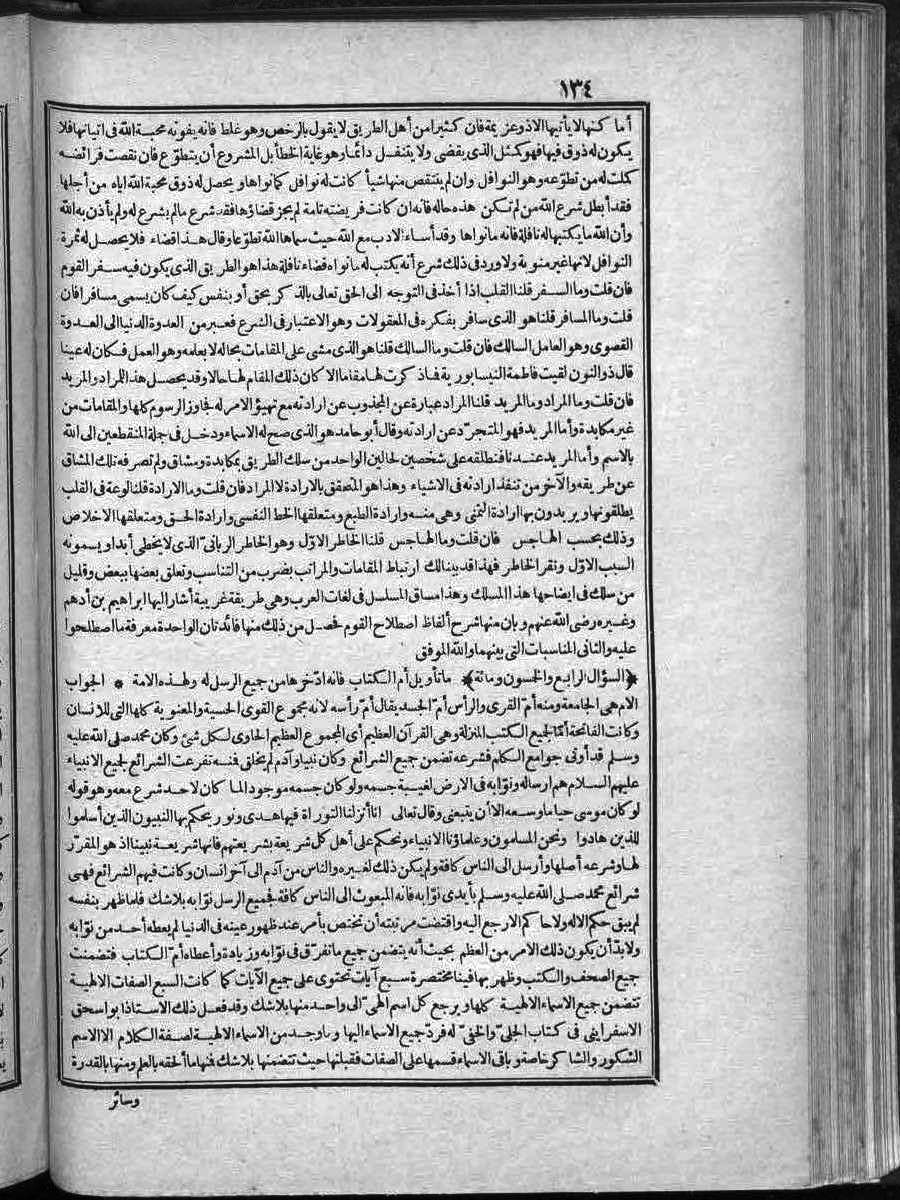 ١٣٤
أما كنها لا يأتيها الا ذو عزيمة فان كثيرا من أهل الطريق لا يقول بالرخص وهو غلط فانه يفوته محبة الله فى اتيانها فلا
يكون له ذوق فيها فهو كمثل الذى يقضى ولا يتنفل دائما وهو غاية الخطأ بل المشروع أن يتطوّع فان نقصت فرائضه
كملت له من تطوّعه وهو النوافل وان لم ينتقص منها شيأ كانت له نوافل كما نواها ويحصل له ذوق محبة الله اياه من أجلها
فقد أبطل شرع الله من لم تكن هذه حاله فانه ان كانت فريضته تامة لم يجز قضاؤها فقد شرع ما لم يشرع له ولم يأذن به الله
وأن الله ما يكتبها له نافلة فانه ما نواها وقد أساء الادب مع الله حيث سماها الله تطوّعا وقال هذا قضاء فلا يحصل له ثمرة
النوافل لانها غير منوية ولا ورد فى ذلك شرع أنه يكتب له ما نواه قضاء نافلة هذا هو الطريق الذى يكون فيه سفر القوم
فان قلت وما السفر قلنا القلب اذا أخذ فى التوجه الى الحق تعالى بالذكر بحق أو بنفس كيف كان يسمى مسافرا فان
قلت وما المسافر قلنا هو الذى سافر بفكره فى المعقولات وهو الاعتبار فى الشرع فعبر من العدوة الدنيا الى العدوة
القصوى وهو العامل السالك فان قلت وما السالك قلنا هو الذى مشى على المقامات بحاله لا بعلمه وهو العمل فكان له عينا
قال ذو النون لقيت فاطمة النيسابورية فما ذكرت لها مقاما الا كان ذلك المقام لها حالا وقد يحصل هذا للمراد والمريد
فان قلت وما المراد وما المريد قلنا المراد عبارة عن المجذوب عن ارادته مع تهيؤ الامر له فجاوز الرسوم كلها والمقامات من
غير مكابدة وأما المريد فهو المتجرّد عن ارادته وقال أبو حامد هو الذى صح له الاسماء ودخل فى جملة المنقطعين الى الله
بالاسم وأما المريد عندنا فنطلقه على شخصين لحالين الواحد من سلك الطريق بمكابدة ومشاق ولم تصرفه تلك المشاق
عن طريقه والآخر من تنفذ ارادته فى الاشياء وهذا هو المتحقق بالارادة لا المراد فان قلت وما الارادة قلنا لوعة فى القلب
يطلقونها ويريدون بها ارادة التمنى وهى منه وارادة الطبع ومتعلقها الحظ النفسى وارادة الحق ومتعلقها الاخلاص
وذلك بحسب الهاجس فان قلت وما الهاجس قلنا الخاطر الاوّل وهو الخاطر الربانى الذى لا يخطى أبدا ويسمونه
السبب الاوّل ونقر الخاطر فهذا قد بينا لك ارتباط المقامات والمراتب بضرب من التناسب وتعلق بعضها ببعض وقليل
من سلك فى ايضاحها هذا المسلك وهذا مساق المسلسل فى لغات العرب وهى طريقة غريبة أشار اليها ابراهيم بن أدهم
وغيره رضى الله عنهم وبان منها شرح ألفاظ اصطلاح القوم فحصل من ذلك منها فائدتان الواحدة معرفة ما اصطلحوا
عليه والثانى المناسبات التى بينهما والله الموفق
﴿السؤال الرابع والخمسون ومائة﴾ ما تأويل أم الكتاب فانه ادّخرها من جميع الرسل له ولهذه الامة * الجواب
الام هى الجامعة ومنه أم القرى والرأس أم الجسد يقال أم رأسه لانه مجموع القوى الحسية والمعنوية كلها التى للانسان
وكانت الفاتحة أمّا لجميع الكتب المنزلة وهى القرآن العظيم أى المجموع العظيم الحاوى لكل شئ وكان محمد صلى الله عليه
وسلم قد أوتى جوامع الكلم فشرعه تضمن جميع الشرائع وكان نبيا وآدم لم يخلق فمنه تفرعت الشرائع لجميع الانبياء
عليهم السلام هم ارساله ونوّابه فى الارض لغيبة جسمه ولو كان جسمه موجودا لما كان لاحد شرع معه وهو قوله
لو كان موسى حيا ما وسعه الا أن يتبعنى وقال تعالى انا أنزلنا التوراة فيها هدى ونور يحكم بها النبيون الذين أسلموا
للذين هادوا ونحن المسلمون وعلماؤنا الانبياء ونحكم على أهل كل شريعة بشريعتهم فانها شريعة نبينا اذ هو المقرّر
لها وشرعه أصلها وأرسل الى الناس كافة ولم يكن ذلك لغيره والناس من آدم الى آخر انسان وكانت فيهم الشرائع فهى
شرائع محمد صلى الله عليه وسلم بأيدى نوّابه فانه المبعوث الى الناس كافة فجميع الرسل نوّابه بلا شك فلما ظهر بنفسه
لم يبق حكم الا له ولا حاكم الا رجع اليه واقتضت مرتبته أن تختص بأمر عند ظهور عينه فى الدنيا لم يعطه أحد من نوّابه
ولا بدّ أن يكون ذلك الامر من العظم بحيث أنه يتضمن جميع ما تفرّق فى نوّابه وزيادة وأعطاه أمّ الكتاب فتضمنت
جميع الصحف والكتب وظهر بها فينا مختصرة سبع آيات تحتوى على جميع الآيات كما كانت السبع الصفات الالهية
تتضمن جميع الاسماء الالهية كلها ويرجع كل اسم الهىّ الى واحد منها بلا شك وقد فعل ذلك الاستاذ ابو اسحق
الاسفراينى فى كتاب الجلىّ والخفىّ له فردّ جميع الاسماء اليها وما وجد من الاسماء الالهية لصفة الكلام الا الاسم
الشكور والشاكر خاصة وباقى الاسماء قسمها على الصفات فقبلتها حيث تتضمنها بلا شك فمنها ما ألحقه بالعلم ومنها بالقدرة
وسائر